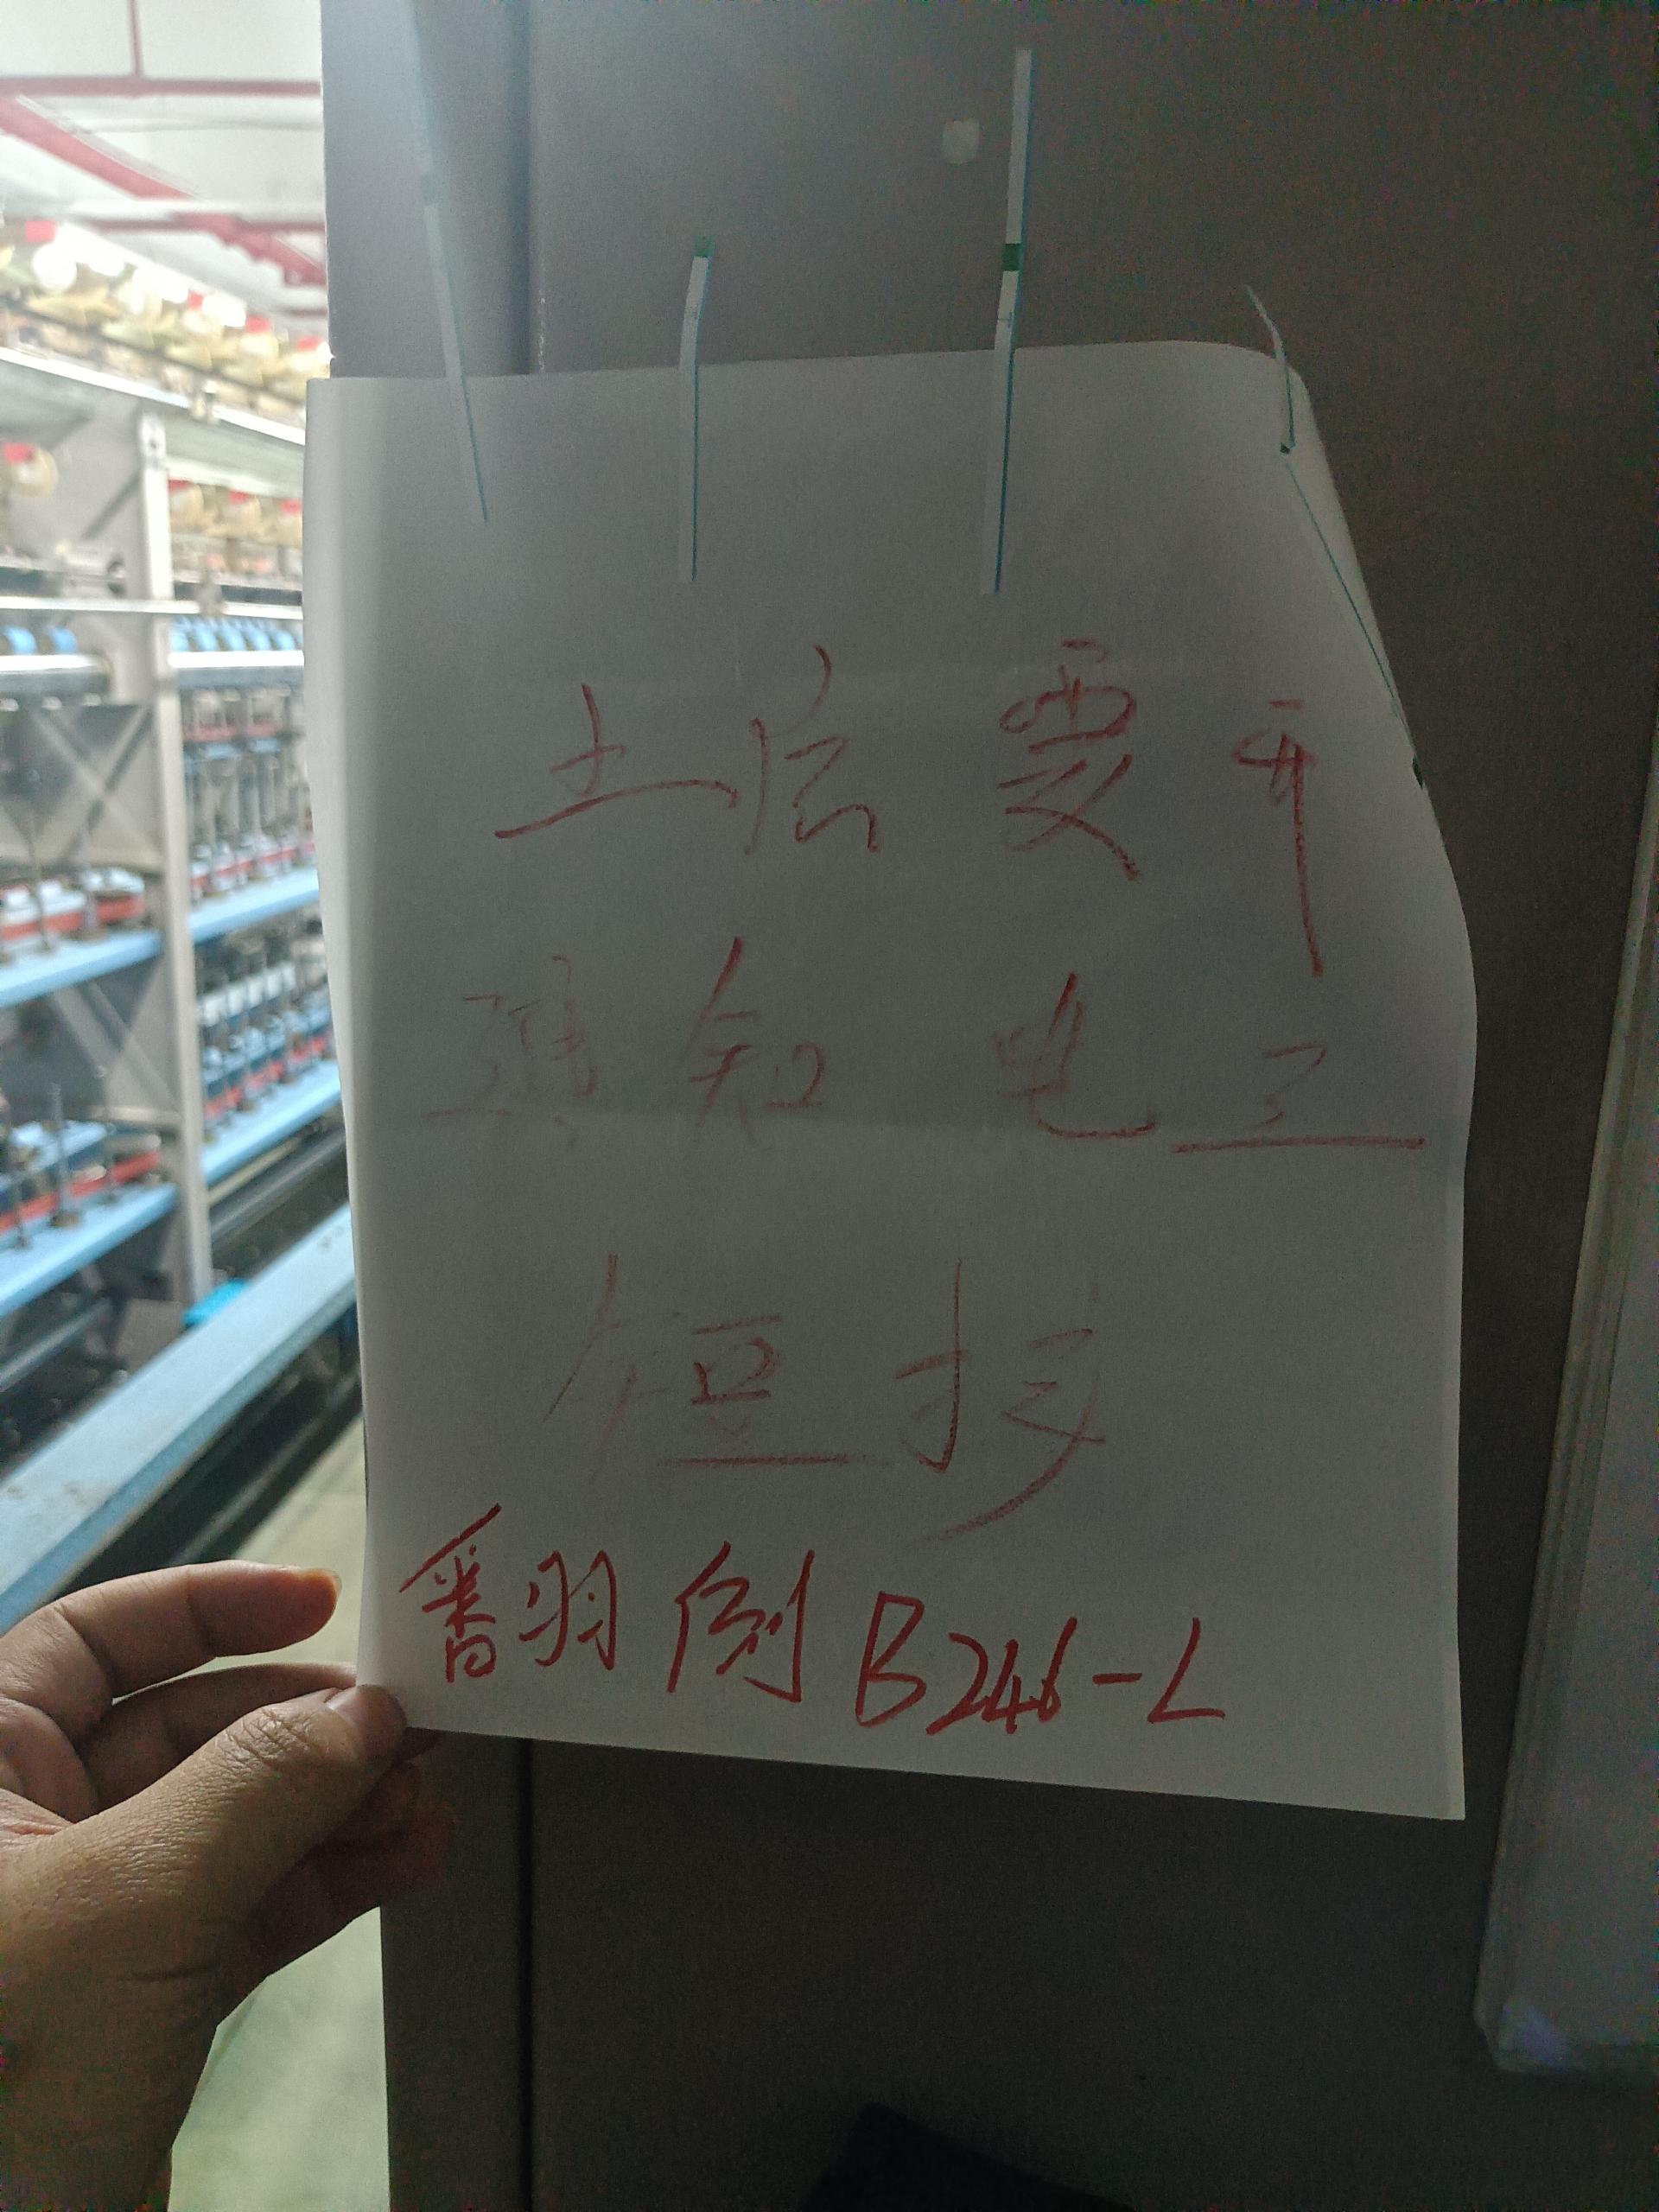 上层要开
通知电工
短接
翻羽侧 B246-L